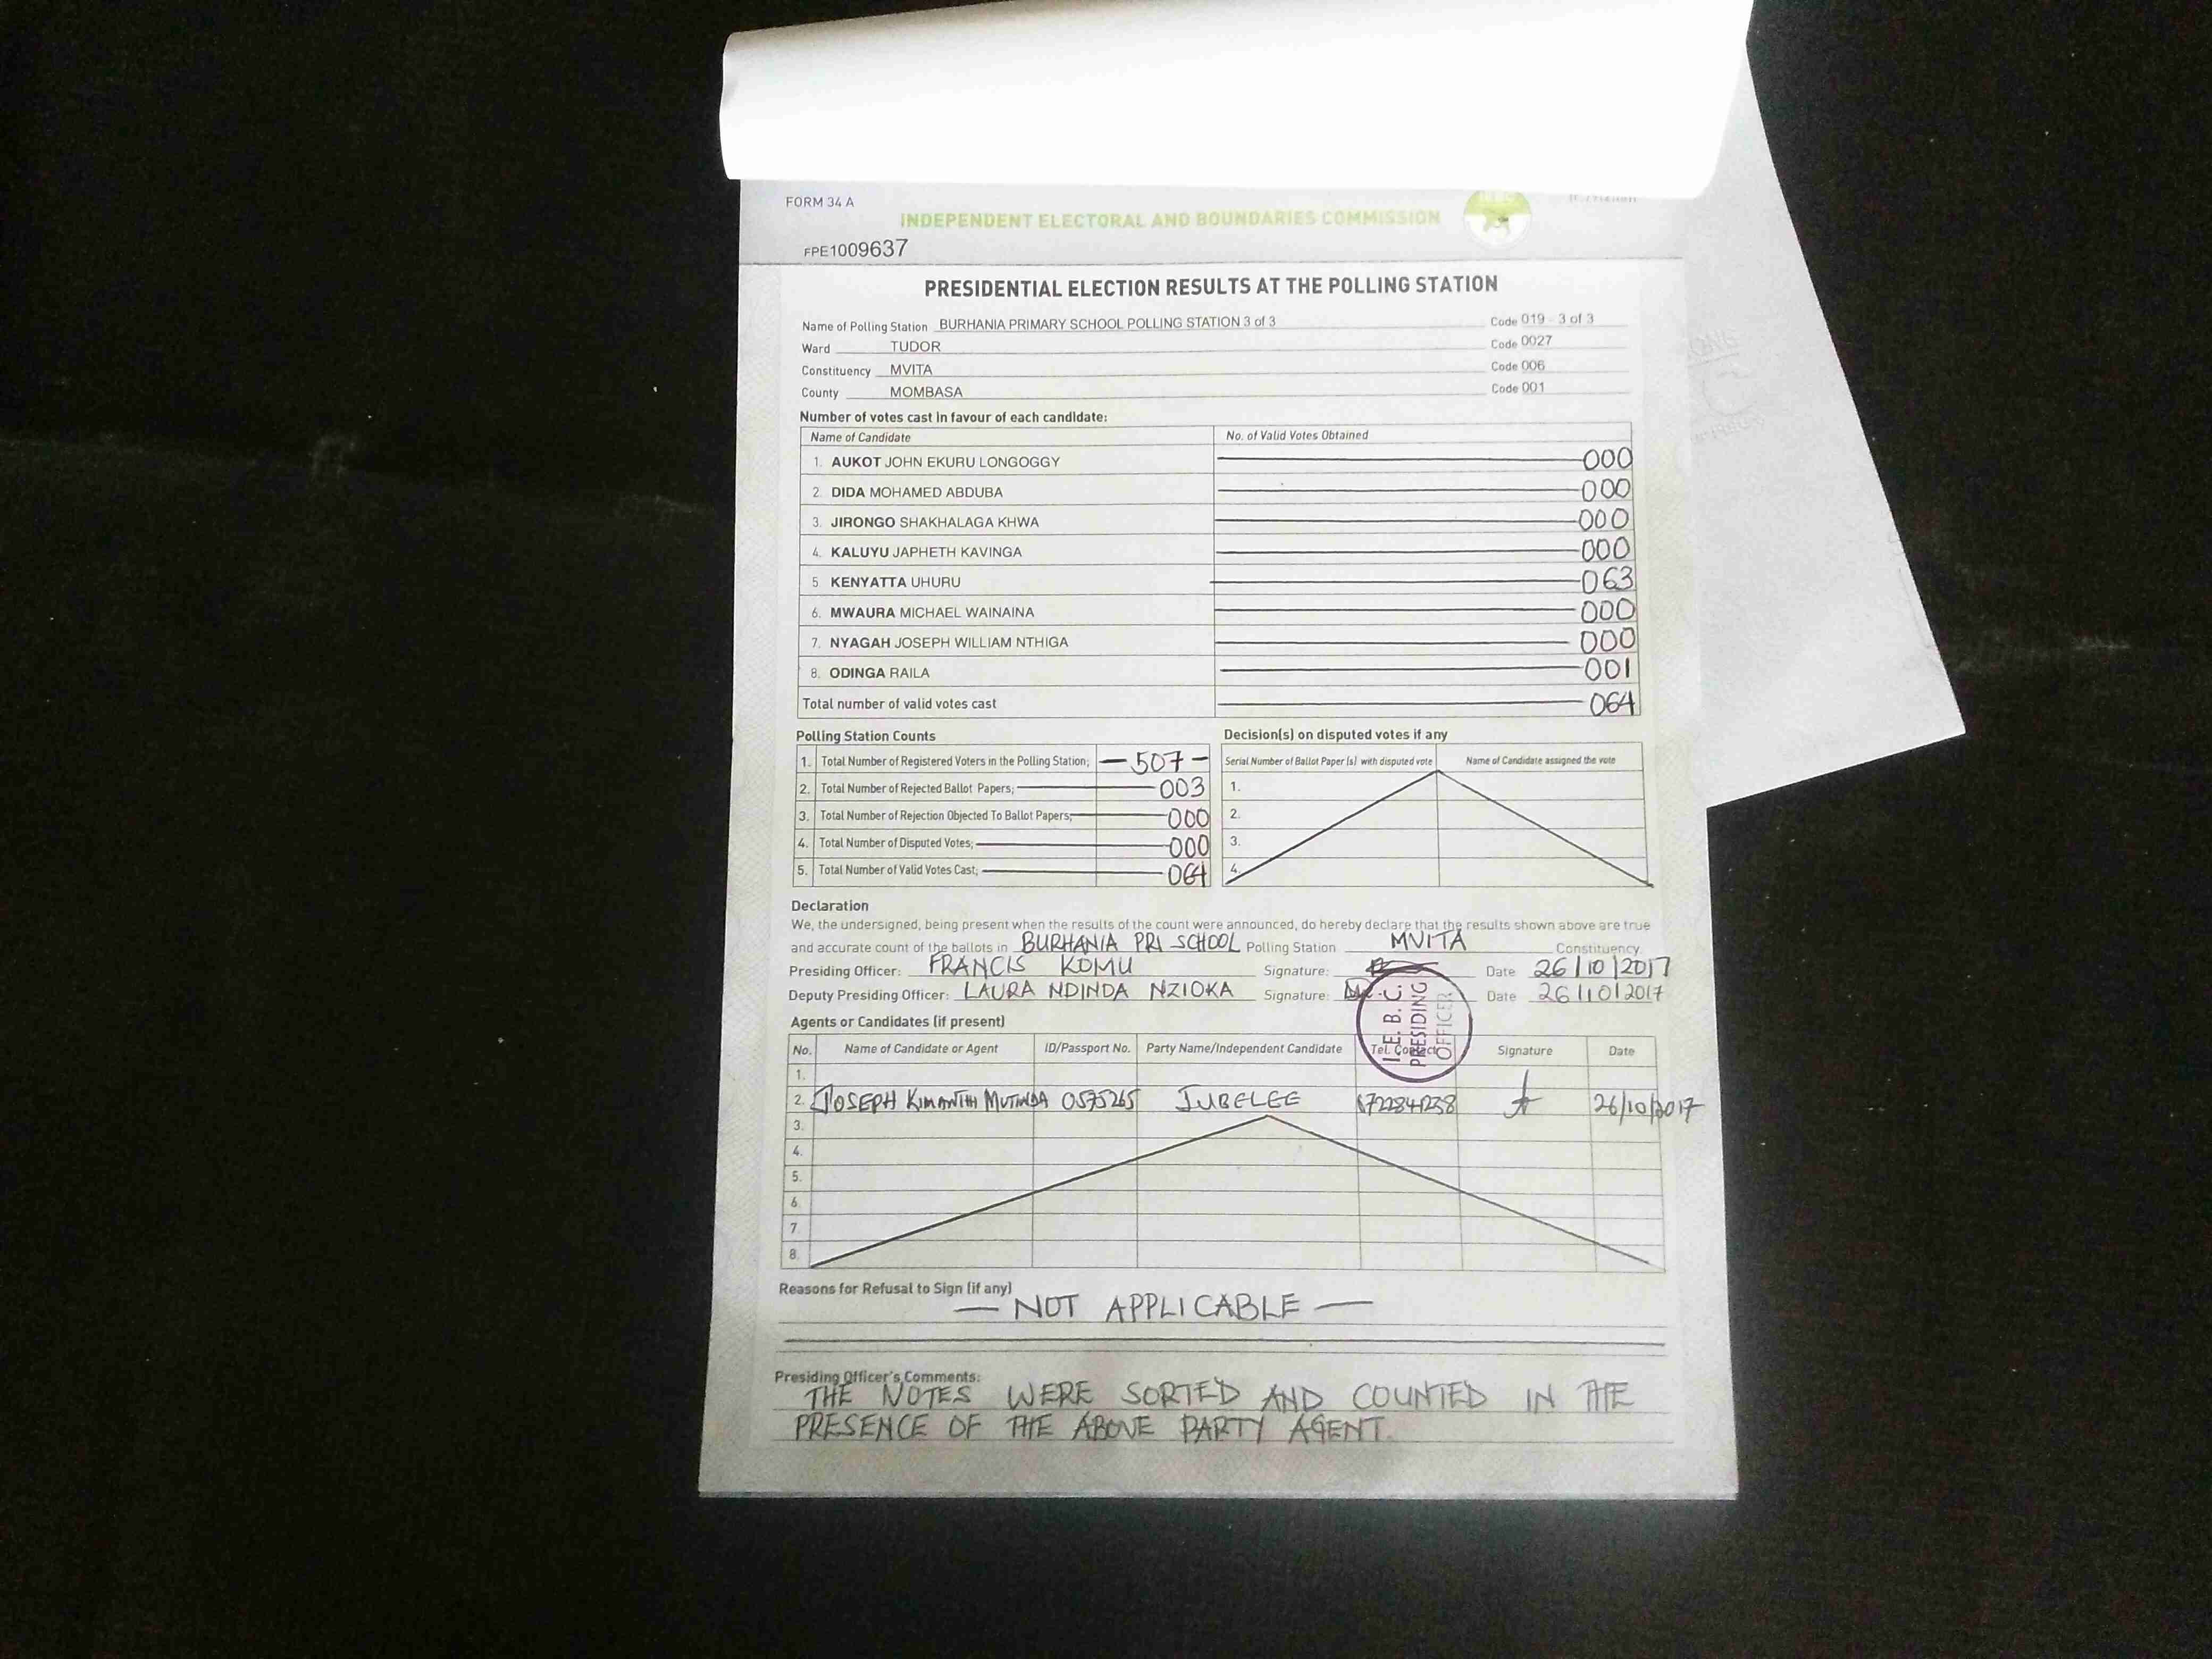 FORM 34 A
INDEPENDENT ELECTORAL AND BOUNDARIES COMMISSION
FPE1009637
PRESIDENTIAL ELECTION RESULTS AT THE POLLING STATION
Name of Polling Station BURHANIA PRIMARY SCHOOL POLLING STATION 3 of 3 Code 019 - 3 of 3
Ward TUDOR Code 0027
Constituency MVITA Code 006
County MOMBASA Code 001
Number of votes cast in favour of each candidate:
Name of Candidate No. of Valid Votes Obtained
1. AUKOT JOHN EKURU LONGOGGY 000
2. DIDA MOHAMED ABDUBA 000
3. JIRONGO SHAKHALAGA KHWA 000
4. KALUYU JAPHETH KAVINGA 000
5. KENYATTA UHURU 063
6. MWAURA MICHAEL WAINAINA 000
7. NYAGAH JOSEPH WILLIAM NTHIGA 000
8. ODINGA RAILA 001
Total number of valid votes cast 064
Polling Station Counts Decision(s) on disputed votes if any
1. Total Number of Registered Voters in the Polling Station; — 507 — Serial Number of Ballot Paper (s) with disputed vote Name of Candidate assigned the vote
2. Total Number of Rejected Ballot Papers; 003 1.
3. Total Number of Rejection Objected To Ballot Papers; 000 2.
4. Total Number of Disputed Votes; 000 3.
5. Total Number of Valid Votes Cast; 064 4.
Declaration
We, the undersigned, being present when the results of the count were announced, do hereby declare that the results shown above are true
and accurate count of the ballots in BURHANIA PRI SCHOOL Polling Station MVITA Constituency.
Presiding Officer: FRANCIS KOMU Signature: Date 26/10/2017
Deputy Presiding Officer: LAURA NDINDA NZIOKA Signature: Date 26/10/2017
I.E.B.C.
PRESIDING
OFFICER
Agents or Candidates (if present)
No. Name of Candidate or Agent ID/Passport No. Party Name/Independent Candidate Tel. Contact Signature Date
1.
2. JOSEPH KIMANTHI MUTINDA 0575265 JUBELEE 26/10/2017
3.
4.
5.
6.
7.
8.
Reasons for Refusal to Sign (if any)
— NOT APPLICABLE —
Presiding Officer's Comments:
THE VOTES WERE SORTED AND COUNTED IN THE
PRESENCE OF THE ABOVE PARTY AGENT.